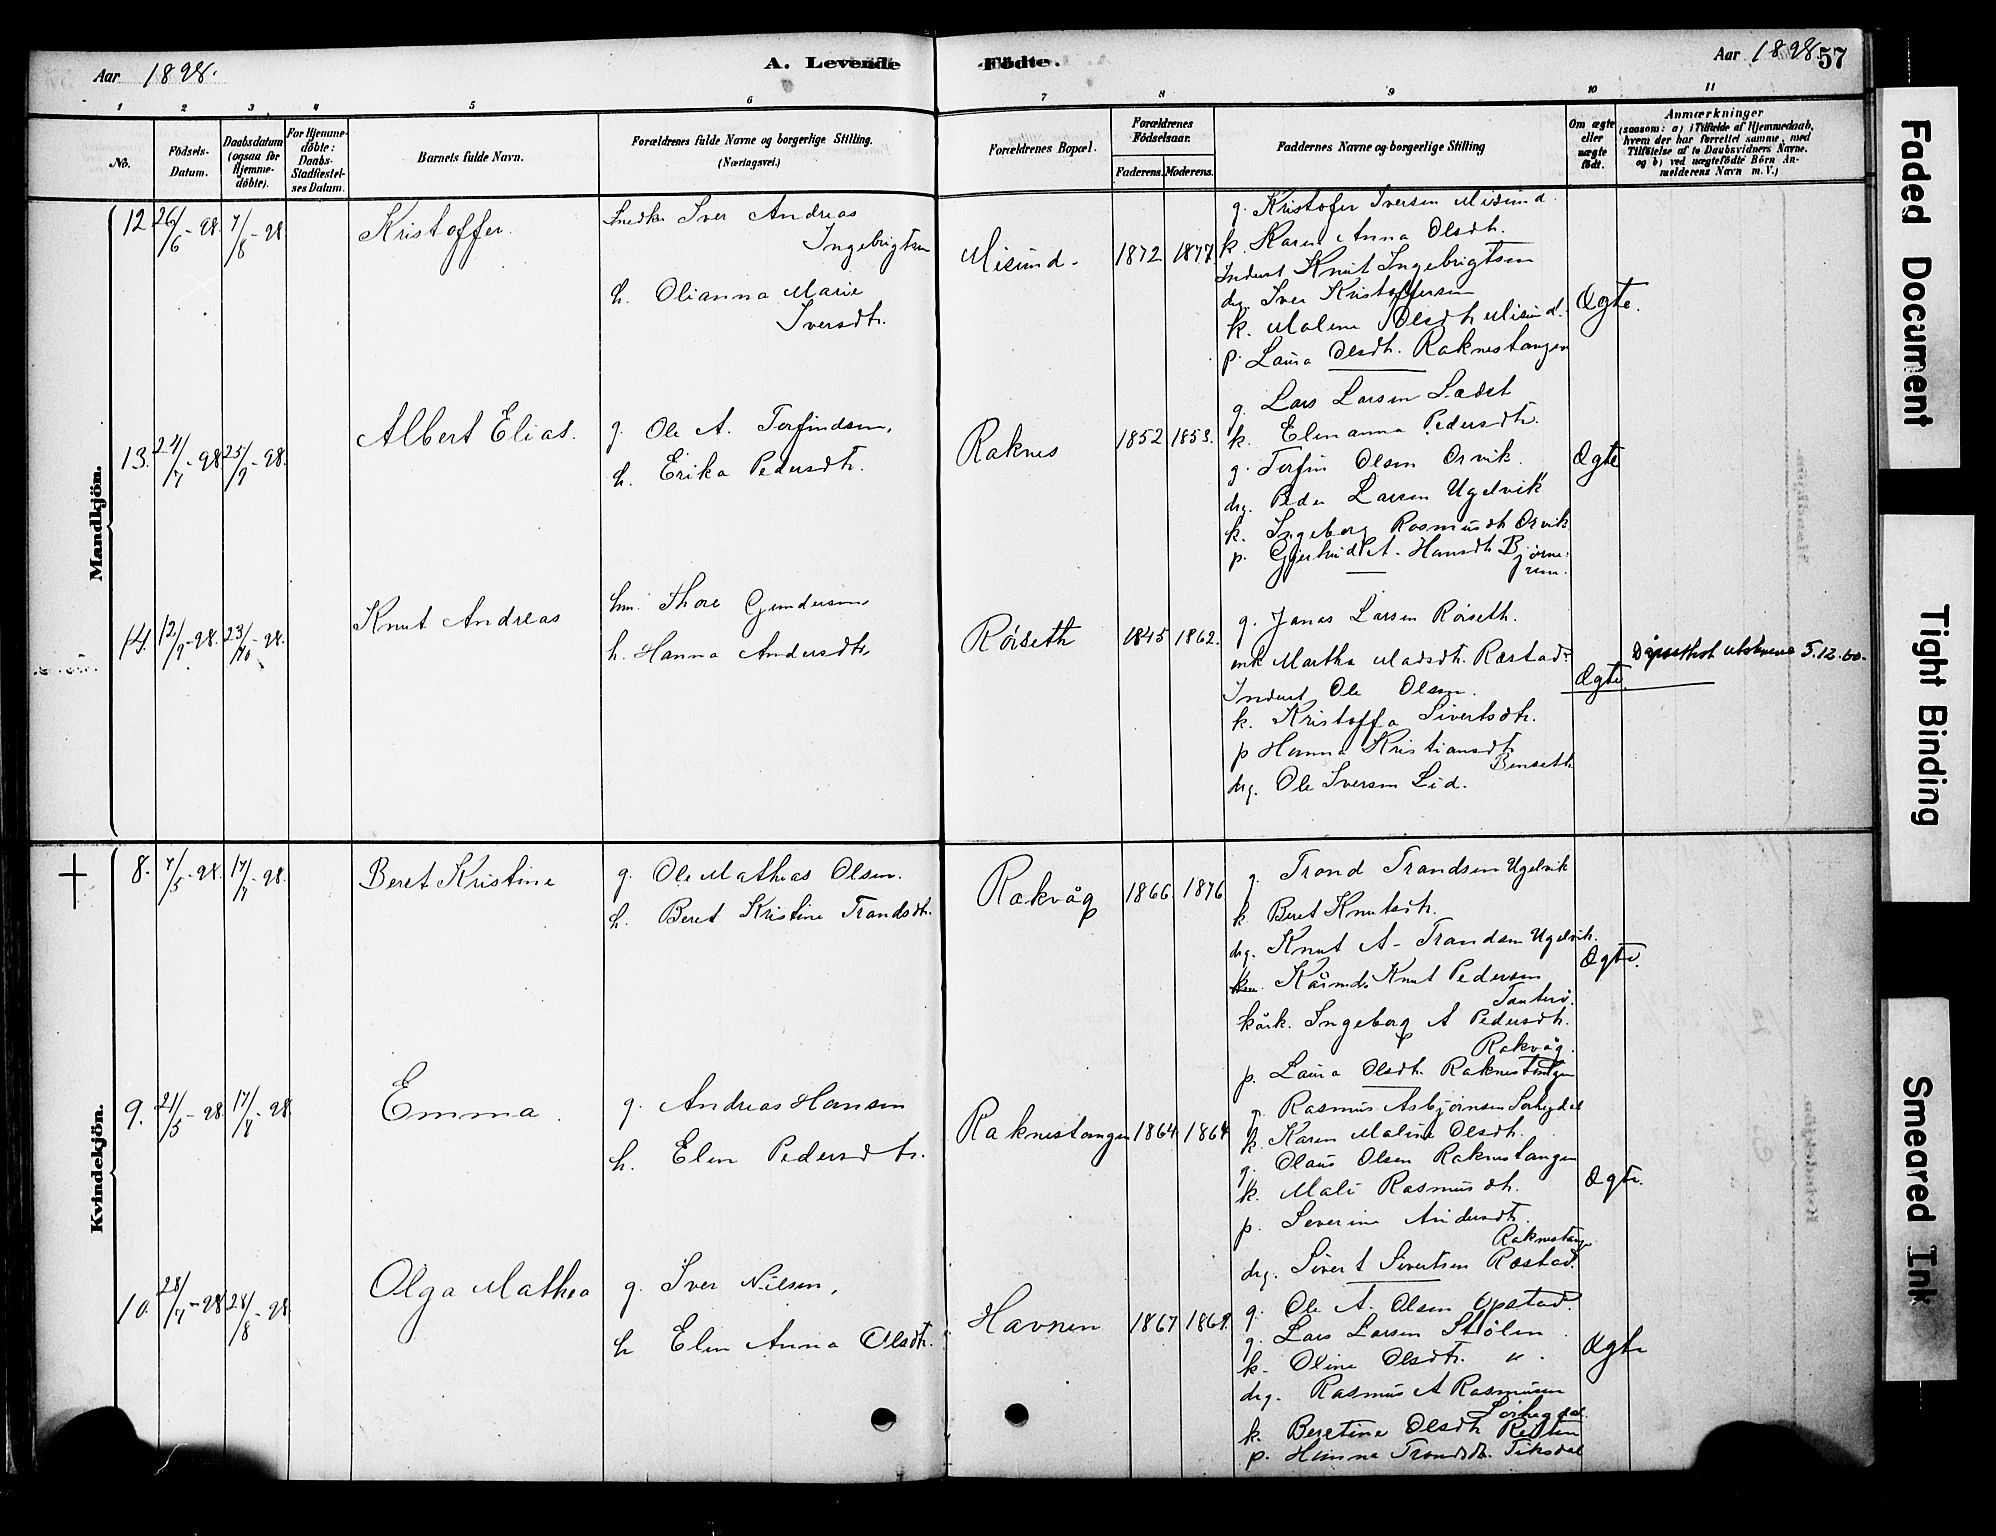 Aar 1898.
A. Levende Födte.
Aar 1898. 57
1 2 3 4 5 6 7 8 9 10 11
No.
Födsels-Datum.
Daabsdatum (ogsaa for Hjemme-döbte).
For Hjemme-döbte: Daabs-Stadfæstel-ses Datum.
Barnets fulde Navn.
Forældrenes fulde Navne og borgerlige Stilling.
(Næringsvei.)
Forældrenes Bopæl.
Forældrenes Födselsaar.
Faderens. Moderens.
Faddernes Navne og borgerlige Stilling
Om ægte eller uægte födt.
Anmærkninger
(saasom: a) i Tilfælde af Hjemmedaab,
hvem der har forrettet samme, med
Tilföielse af to Daabsvidners Navne.
og b) ved uægtefödte Börn An-
melderens Navn m. V.)
Mandkjön.
12 26/6-98 7/8-98
Kristoffer.
Snedk. Iver Andreas
Ingebrigtsen
h. Olianna Marie
Iversdtr.
Misund.
1872 1877
g. Kristofer Iversen Misund.
k. Karen Anna Olsdtr.
Inderst Knut Ingebrigtsen
drg. Iver Kristoffersen
k. Malene Olsdtr Misund.
p. Laura Olsdtr. Raknestangen
Ægte.
13. 24/7-98 25/9-98.
Albert Elias.
g. Ole A. Torfindsen,
h. Erika Pedersdtr.
Raknes
1852 1853.
g. Lars Larsen Sædet
k. Elenanna Pedersdtr.
g. Torfin Olsen Orvik.
drg. Peder Larsen Ugelvik
k. Ingeborg Rasmusdtr Orvik
p. Gjertrud A. Hansdtr Bjørne-
rem.
Ægte
14. 12/9-98 23/10-98.
Knut Andreas
hm. Thore Gundersen,
h. Hanna Andersdtr,
Röiseth
1845 1862.
g. Jonas Larsen Röiseth.
enk Martha Madsdtr. Ræstad.
Inderst Ole Olsen.
k. Kristoffa Sivertsdtr.
p Hanna Kristiansdtr
Benseth
drg. Ole Iversen Lid.
Ægte.
5.12.60.
Kvindekjön.
8. 7/5-98. 17/7-98.
Beret Kristine
g. Ole Mathias Olsen.
h. Beret Kristine Trandsdtr.
Rakvåg
1866. 1876
g. Trond Trandsen Ugelvik
k Beret Knutsdtr.
drg. Knut A- Trandsen Ugelvik.
Kårmd. Knut Pedersen
Tauterö.
kårk. Ingeborg A Pedersdtr.
Rakvåg.
p. Laura Olsdtr. Raknestangen
Ægte.
9. 21/5-98 17/8-98
Emma.
g. Andreas Hansen
h. Elen Pedersdtr.
Raknestangen
1864 1864
g. Rasmus Asbjörnsen Sorhegdal
k. Karen Maline Olsdtr.
g. Olaus Olsen Raknestangen
k. Mali Rasmusdtr.
p. Severine Andersdtr.
Raknestangen
drg. Sivert Sivertsen Ræstad.
Ægte.
10. 28/7-98 28/8-98
Olga Mathea
g. Iver Nilsen,
h Elen Anna Olsdtr.
Havnen
1867 1869.
g. Ole A. Olsen Opstad.
g. Lars Larsen Stölen
k. Oline Olsdtr. " .
drg. Rasmus A Rasmusen
Sörhegdal
k. Beretine Olsdtr Reiten
p. Hanna Trondsdtr. Tiksdal
Ægte
Faded Document
Tight Binding
Smeared Ink